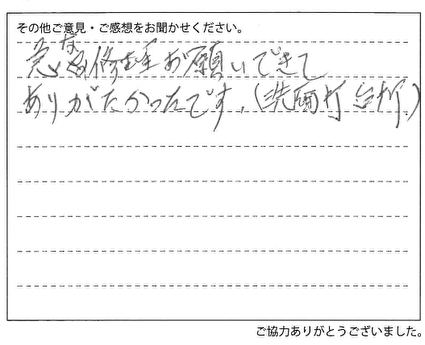 その他ご意見・ご感想をお聞かせください。
急な修理お願いできて
ありがたかったです。(洗面灯 台所)
ご協力ありがとうございました。